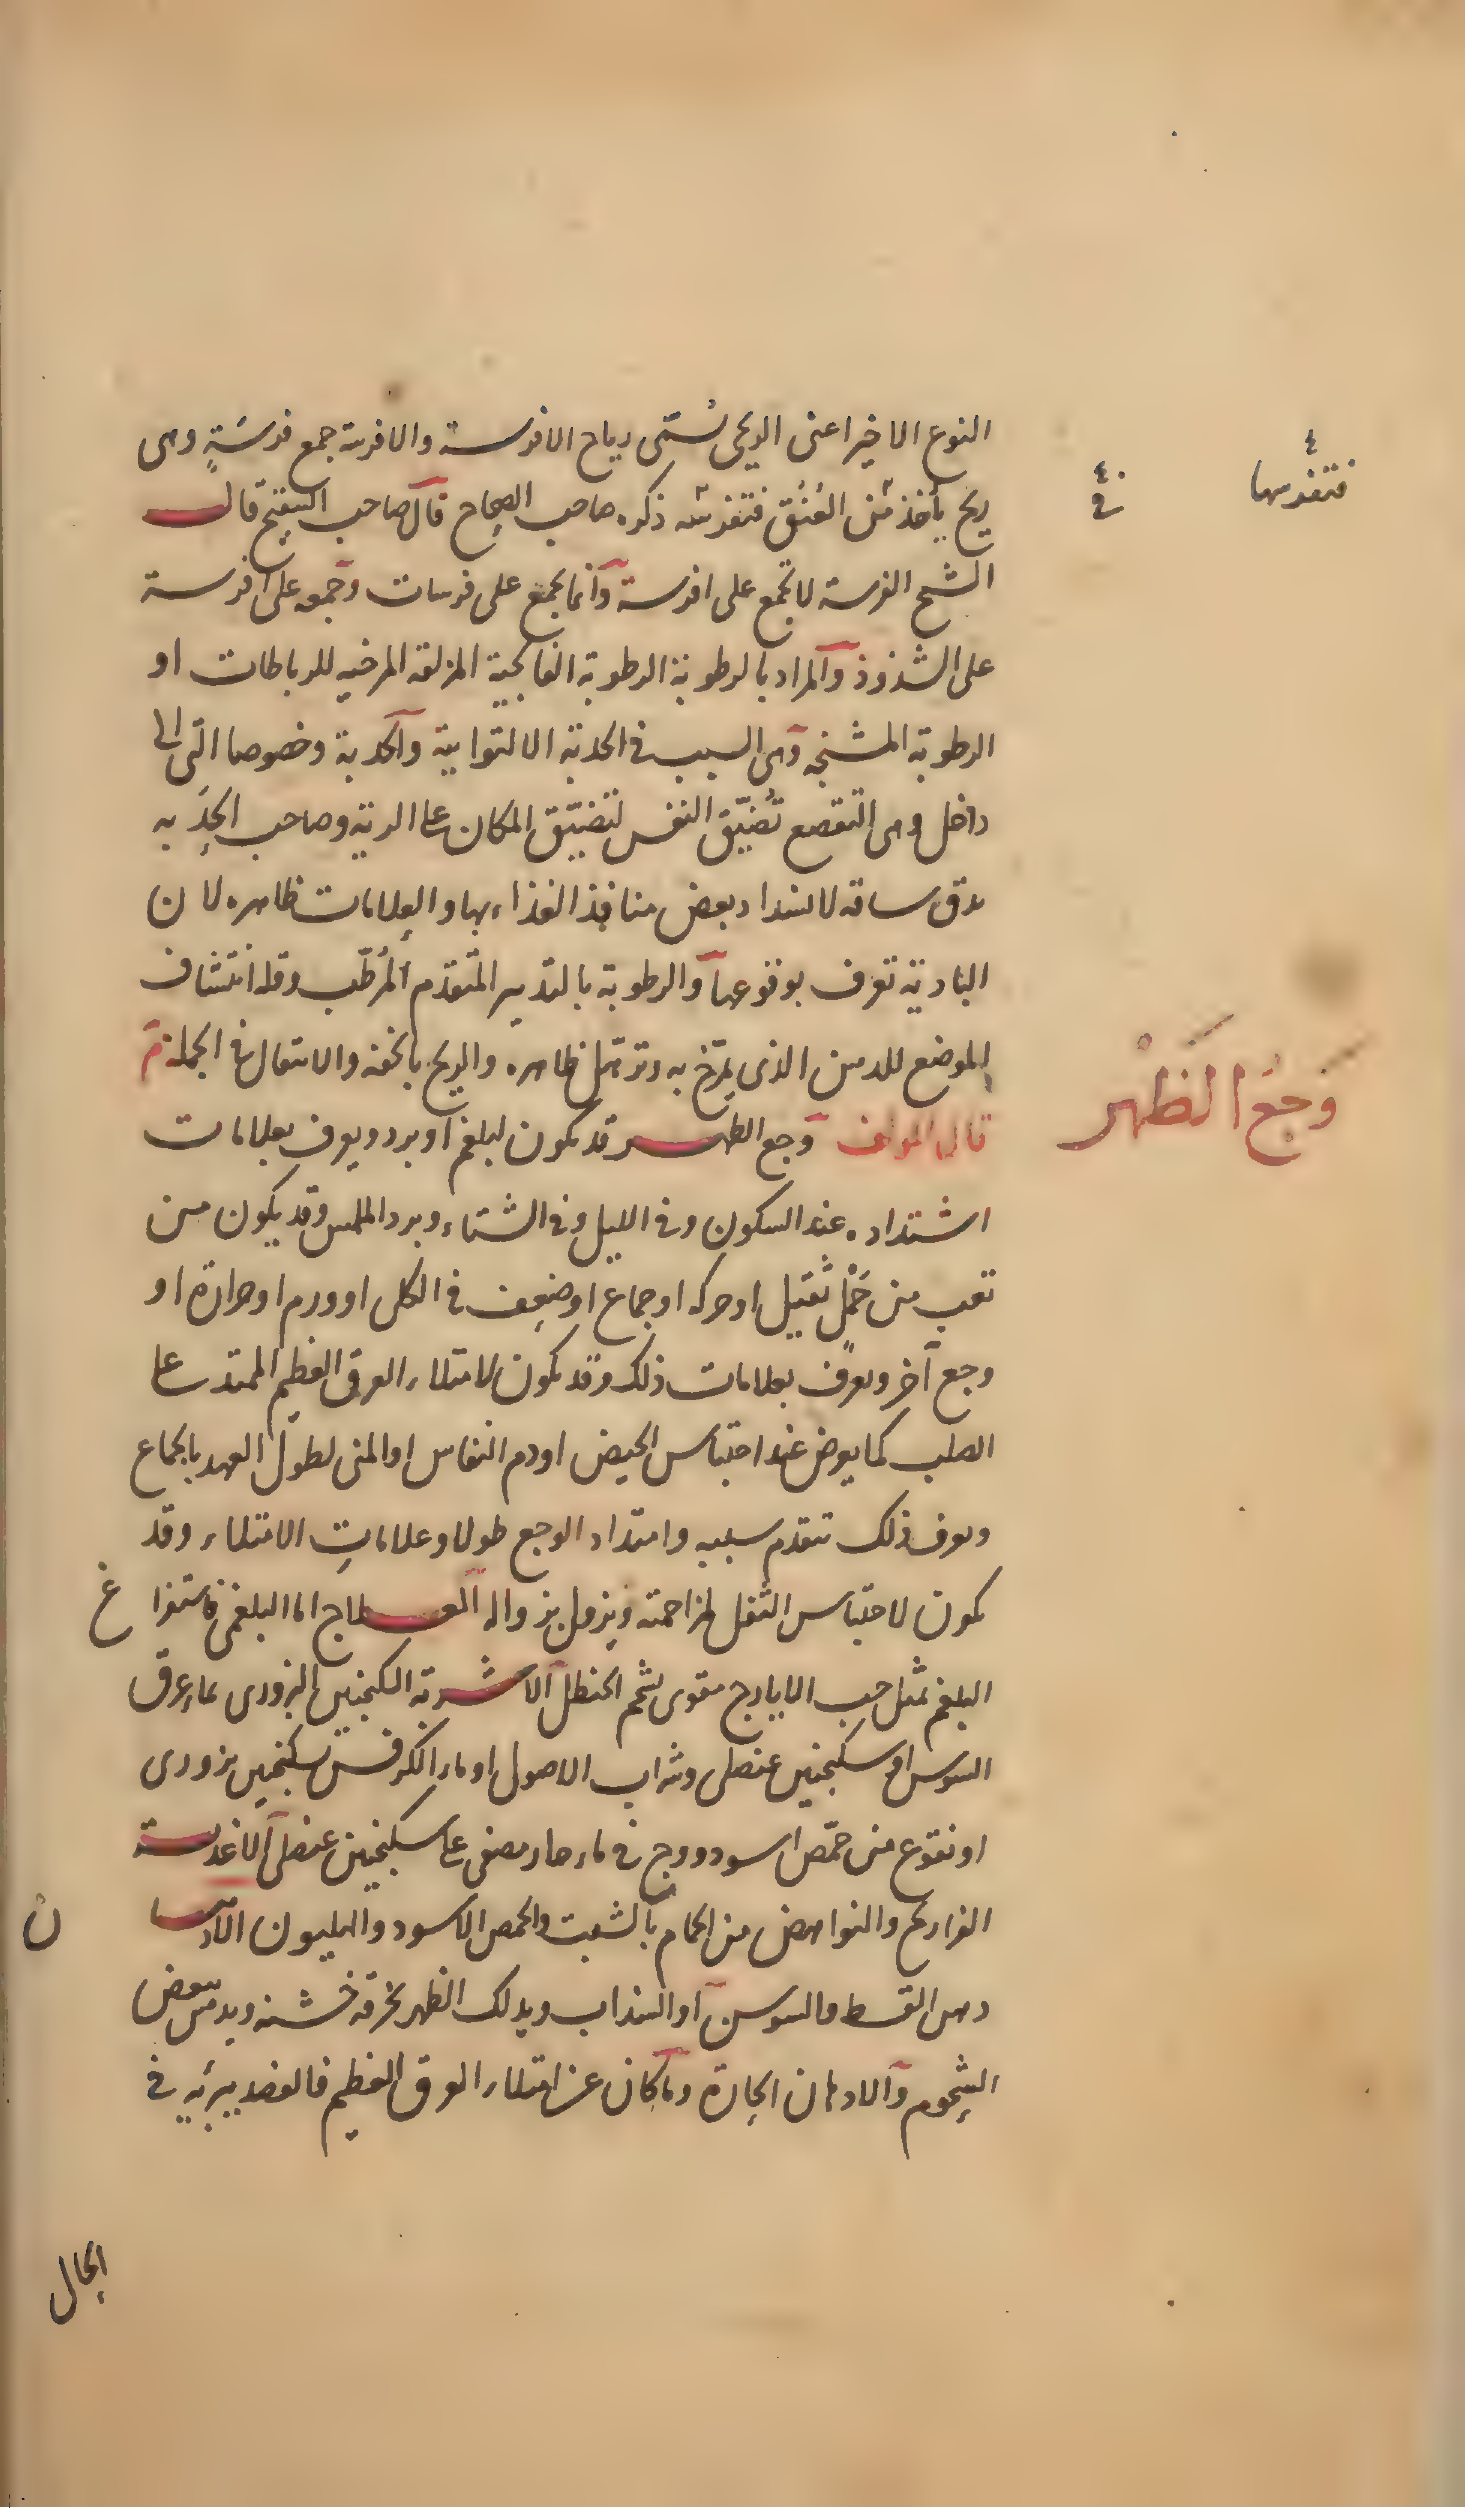 النوع الاخير اعنى الريحى تسمّى رياح الافرسة والافرسة جمع فرسَةٍ وهى
ريح يأخذ فى العُنُق فتفرسه ذكره صاحب الصحاح قال صاحب التنقيح قال
فتفرسها
فى
الشيخ الفرسة لا تجمع على افرسة وانما تجمع على فرسات وجمعه على افرسة
على الشذوذ والمراد بالرطوبة الرطوبة الفالجية المزلقة المرخيه للرباطات او
الرطوبة المشنجه وهى السبب فى الحدبة الالتوايية والحدبة وخصوصا التى الى
داخل وهى التقصع تُضيّق النفس لتضيّق المكان على الرية وصاحب الحدَبه
يدق ساقه لانسداد بعض منافذ الغذاء بها والعلامات ظاهره لان
البادية تعرف بوقوعها والرطوبة بالتدبير المتقدم المُرَطّب وقله انتشاف
الموضع للدهن الذى يمرّخ به وترهّل ظاهره والريح بالخفه والانتقال فى الجملة
وَجَعُ الظَهْر
قال المولف وجع الظهر قد يكون لبلغم او برد ويعرف بعلامات
اشتداده عند السكون وفى الليل وفى الشتاء وبرد الملمس وقد يكون من
تعب من حَمْلٍ ثقيل او حركه او جماع او ضعف فى الكلى او ورم او حرارة او
وجع آخر ويعرف بعلامات ذلك وقد يكون لامتلاء العرق العظيم الممتد على
الصلب كما يعرض عند احتباس الحيض او دم النفاس او المنى لطول العهد بالجماع
ويعرف ذلك بتقدم سببه وامتداد الوجع طولا وعلامات الامتلاء وقد
يكون لاحتباس الثفل لمزاحمته ويزول بزواله العلاج اما البلغمى فاستفراغ
البلغم بمثل حب الايارج مقوى بشحم الحنظل الاشربة السكنجبين البزورى بماء عرق
السوس او سكنجبين عنصلى وشراب الاصول او ماء الكرفس بسكنجبين بزورى
او نقوع من حمّص اسود ووج فى ماء حار مصفى على سكنجبين عنصلى الاغذية
الفراريج والنواهض من الحمام بالشبت والحمص الاسود والهليون الادهان
دهن القسط والسوسن او السذاب ويدلك الظهر بخرقة خشنه ويدهن ببعض
الشحوم والادهان الحارة وما كان عن امتلاء العرق العظيم فالفصد يبريه فى
الحال